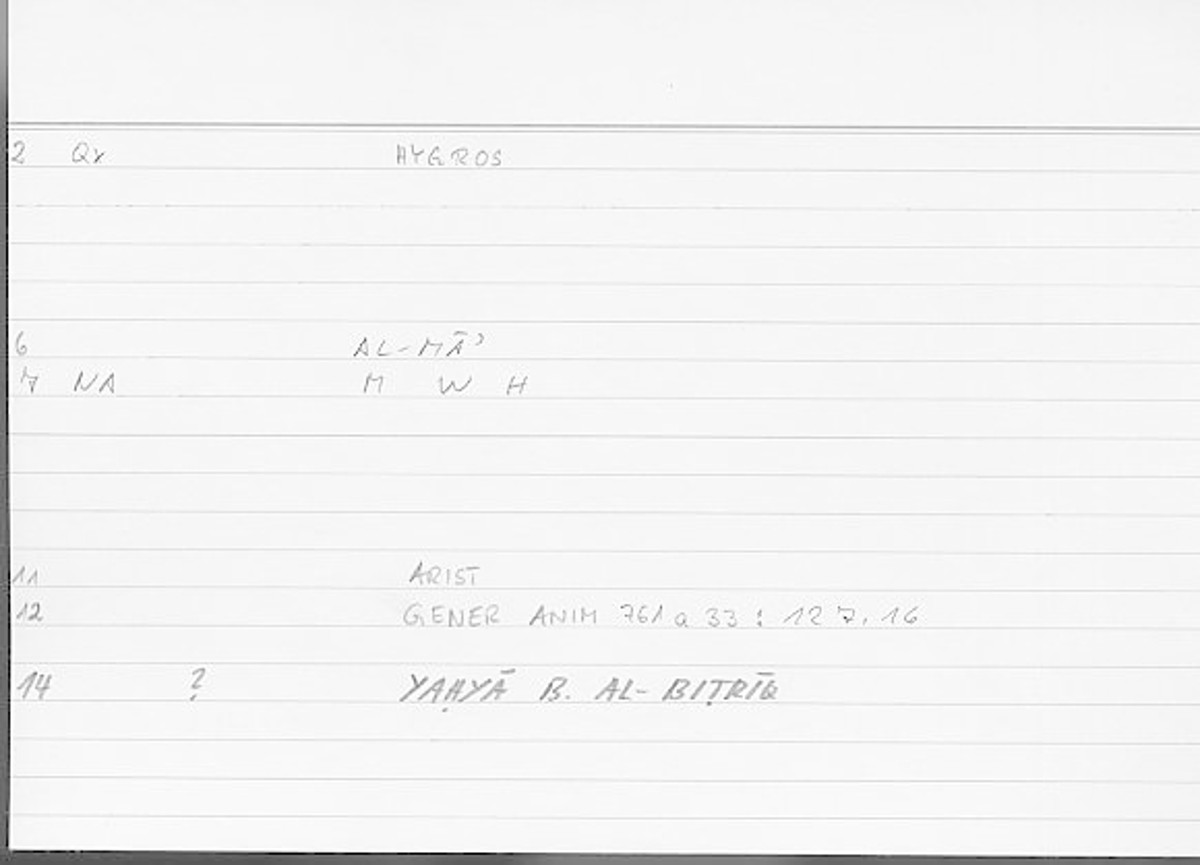 2 Qx HYGROS
6 AL-MĀʾ
7 NA M W H
11 ARIST
12 GENER ANIM 761 a 33 : 127.16
14 ? YAḤYĀ B. AL-BIṬRĪQ